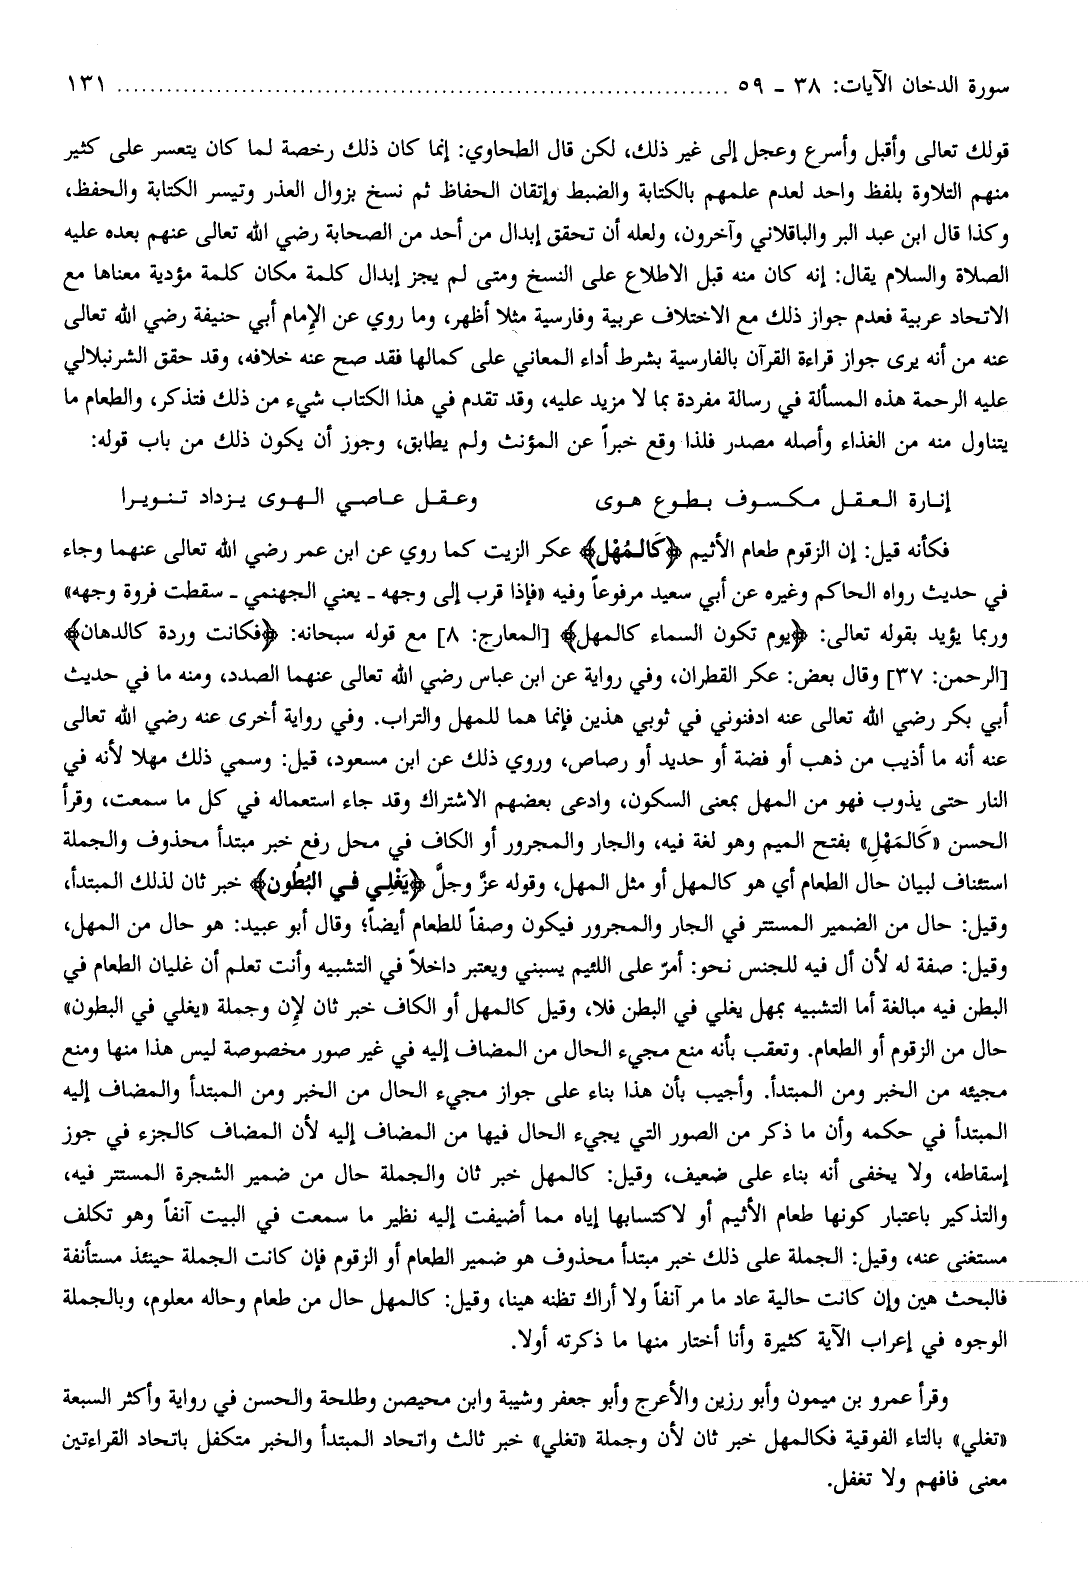 سورة الدخان الآيات: ٣٨ ـ ٥٩ ........................................................................ ١٣١
قولك تعالى وأقبل وأسرع وعجل إلى غير ذلك، لكن قال الطحاوي: إنما كان ذلك رخصة لما كان يتعسر على كثير
منهم التلاوة بلفظ واحد لعدم علمهم بالكتابة والضبط وإتقان الحفاظ ثم نسخ بزوال العذر وتيسر الكتابة والحفظ،
وكذا قال ابن عبد البر والباقلاني وآخرون، ولعله أن تحقق إبدال من أحد من الصحابة رضي الله تعالى عنهم بعده عليه
الصلاة والسلام يقال: إنه كان منه قبل الاطلاع على النسخ ومتى لم يجز إبدال كلمة مكان كلمة مؤدية معناها مع
الاتحاد عربية فعدم جواز ذلك مع الاختلاف عربية وفارسية مثلا أظهر، وما روي عن الإمام أبي حنيفة رضي الله تعالى
عنه من أنه يرى جواز قراءة القرآن بالفارسية بشرط أداء المعاني على كمالها فقد صح عنه خلافه، وقد حقق الشرنبلالي
عليه الرحمة هذه المسألة في رسالة مفردة بما لا مزيد عليه، وقد تقدم في هذا الكتاب شيء من ذلك فتذكر، والطعام ما
يتناول منه من الغذاء وأصله مصدر فلذا وقع خبراً عن المؤنث ولم يطابق، وجوز أن يكون ذلك من باب قوله:
إنارة العقل مكسوف بطوع هوى وعقل عاصي الهوى يزداد تنويرا
فكأنه قيل: إن الزقوم طعام الأثيم ﴿كَالـمُهْل﴾ عكر الزيت كما روي عن ابن عمر رضي الله تعالى عنهما وجاء
في حديث رواه الحاكم وغيره عن أبي سعيد مرفوعاً وفيه «فإذا قرب إلى وجهه ـ يعني الجهنمي ـ سقطت فروة وجهه»
وربما يؤيد بقوله تعالى: ﴿يوم تكون السماء كالمهل﴾ [المعارج: ٨] مع قوله سبحانه: ﴿فكانت وردة كالدهان﴾
[الرحمن: ٣٧] وقال بعض: عكر القطران، وفي رواية عن ابن عباس رضي الله تعالى عنهما الصدد، ومنه ما في حديث
أبي بكر رضي الله تعالى عنه ادفنوني في ثوبي هذين فإنما هما للمهل والتراب. وفي رواية أخرى عنه رضي الله تعالى
عنه أنه ما أذيب من ذهب أو فضة أو حديد أو رصاص، وروي ذلك عن ابن مسعود، قيل: وسمي ذلك مهلا لأنه في
النار حتى يذوب فهو من المهل بمعنى السكون، وادعى بعضهم الاشتراك وقد جاء استعماله في كل ما سمعت، وقرأ
الحسن «كَالمَهْلِ» بفتح الميم وهو لغة فيه، والجار والمجرور أو الكاف في محل رفع خبر مبتدأ محذوف والجملة
استئناف لبيان حال الطعام أي هو كالمهل أو مثل المهل، وقوله عزَّ وجلَّ ﴿يَغْلِي في البُطُون﴾ خبر ثان لذلك المبتدأ،
وقيل: حال من الضمير المستتر في الجار والمجرور فيكون وصفاً للطعام أيضاً؛ وقال أبو عبيد: هو حال من المهل،
وقيل: صفة له لأن أل فيه للجنس نحو: أمرّ على اللئيم يسبني ويعتبر داخلاً في التشبيه وأنت تعلم أن غليان الطعام في
البطن فيه مبالغة أما التشبيه بمهل يغلي في البطن فلا، وقيل كالمهل أو الكاف خبر ثان لإن وجملة «يغلي في البطون»
حال من الزقوم أو الطعام. وتعقب بأنه منع مجيء الحال من المضاف إليه في غير صور مخصوصة ليس هذا منها ومنع
مجيئه من الخبر ومن المبتدأ. وأجيب بأن هذا بناء على جواز مجيء الحال من الخبر ومن المبتدأ والمضاف إليه
المبتدأ في حكمه وأن ما ذكر من الصور التي يجيء الحال فيها من المضاف إليه لأن المضاف كالجزء في جوز
إسقاطه، ولا يخفى أنه بناء على ضعيف، وقيل: كالمهل خبر ثان والجملة حال من ضمير الشجرة المستتر فيه،
والتذكير باعتبار كونها طعام الأثيم أو لاكتسابها إياه مما أضيفت إليه نظير ما سمعت في البيت آنفاً وهو تكلف
مستغنى عنه، وقيل: الجملة على ذلك خبر مبتدأ محذوف هو ضمير الطعام أو الزقوم فإن كانت الجملة حينئذ مستأنفة
فالبحث هين وإن كانت حالية عاد ما مر آنفاً ولا أراك تظنه هينا، وقيل: كالمهل حال من طعام وحاله معلوم، وبالجملة
الوجوه في إعراب الآية كثيرة وأنا أختار منها ما ذكرته أولا.
وقرأ عمرو بن ميمون وأبو رزين والأعرج وأبو جعفر وشيبة وابن محيصن وطلحة والحسن في رواية وأكثر السبعة
«تغلي» بالتاء الفوقية فكالمهل خبر ثان لأن وجملة «تغلي» خبر ثالث واتحاد المبتدأ والخبر متكفل باتحاد القراءتين
معنى فافهم ولا تغفل.